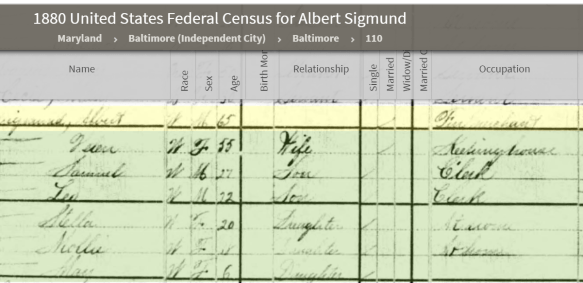 1880 United States Federal Census for Albert Sigmund
Maryland > Baltimore (Independent City) > Baltimore > 110
Name Race Sex Age Birth Mon Relationship Single Married Widow/D Married Occupation
Sigmund, Albert W M 65
W F 55 Wife Keeping house
Samuel W M 27 Son Clerk
Leo W M 22 Son Clerk
Stella W F 20 Daughter At home
Mollie W F 18 Daughter At home
May W F 6 Daughter